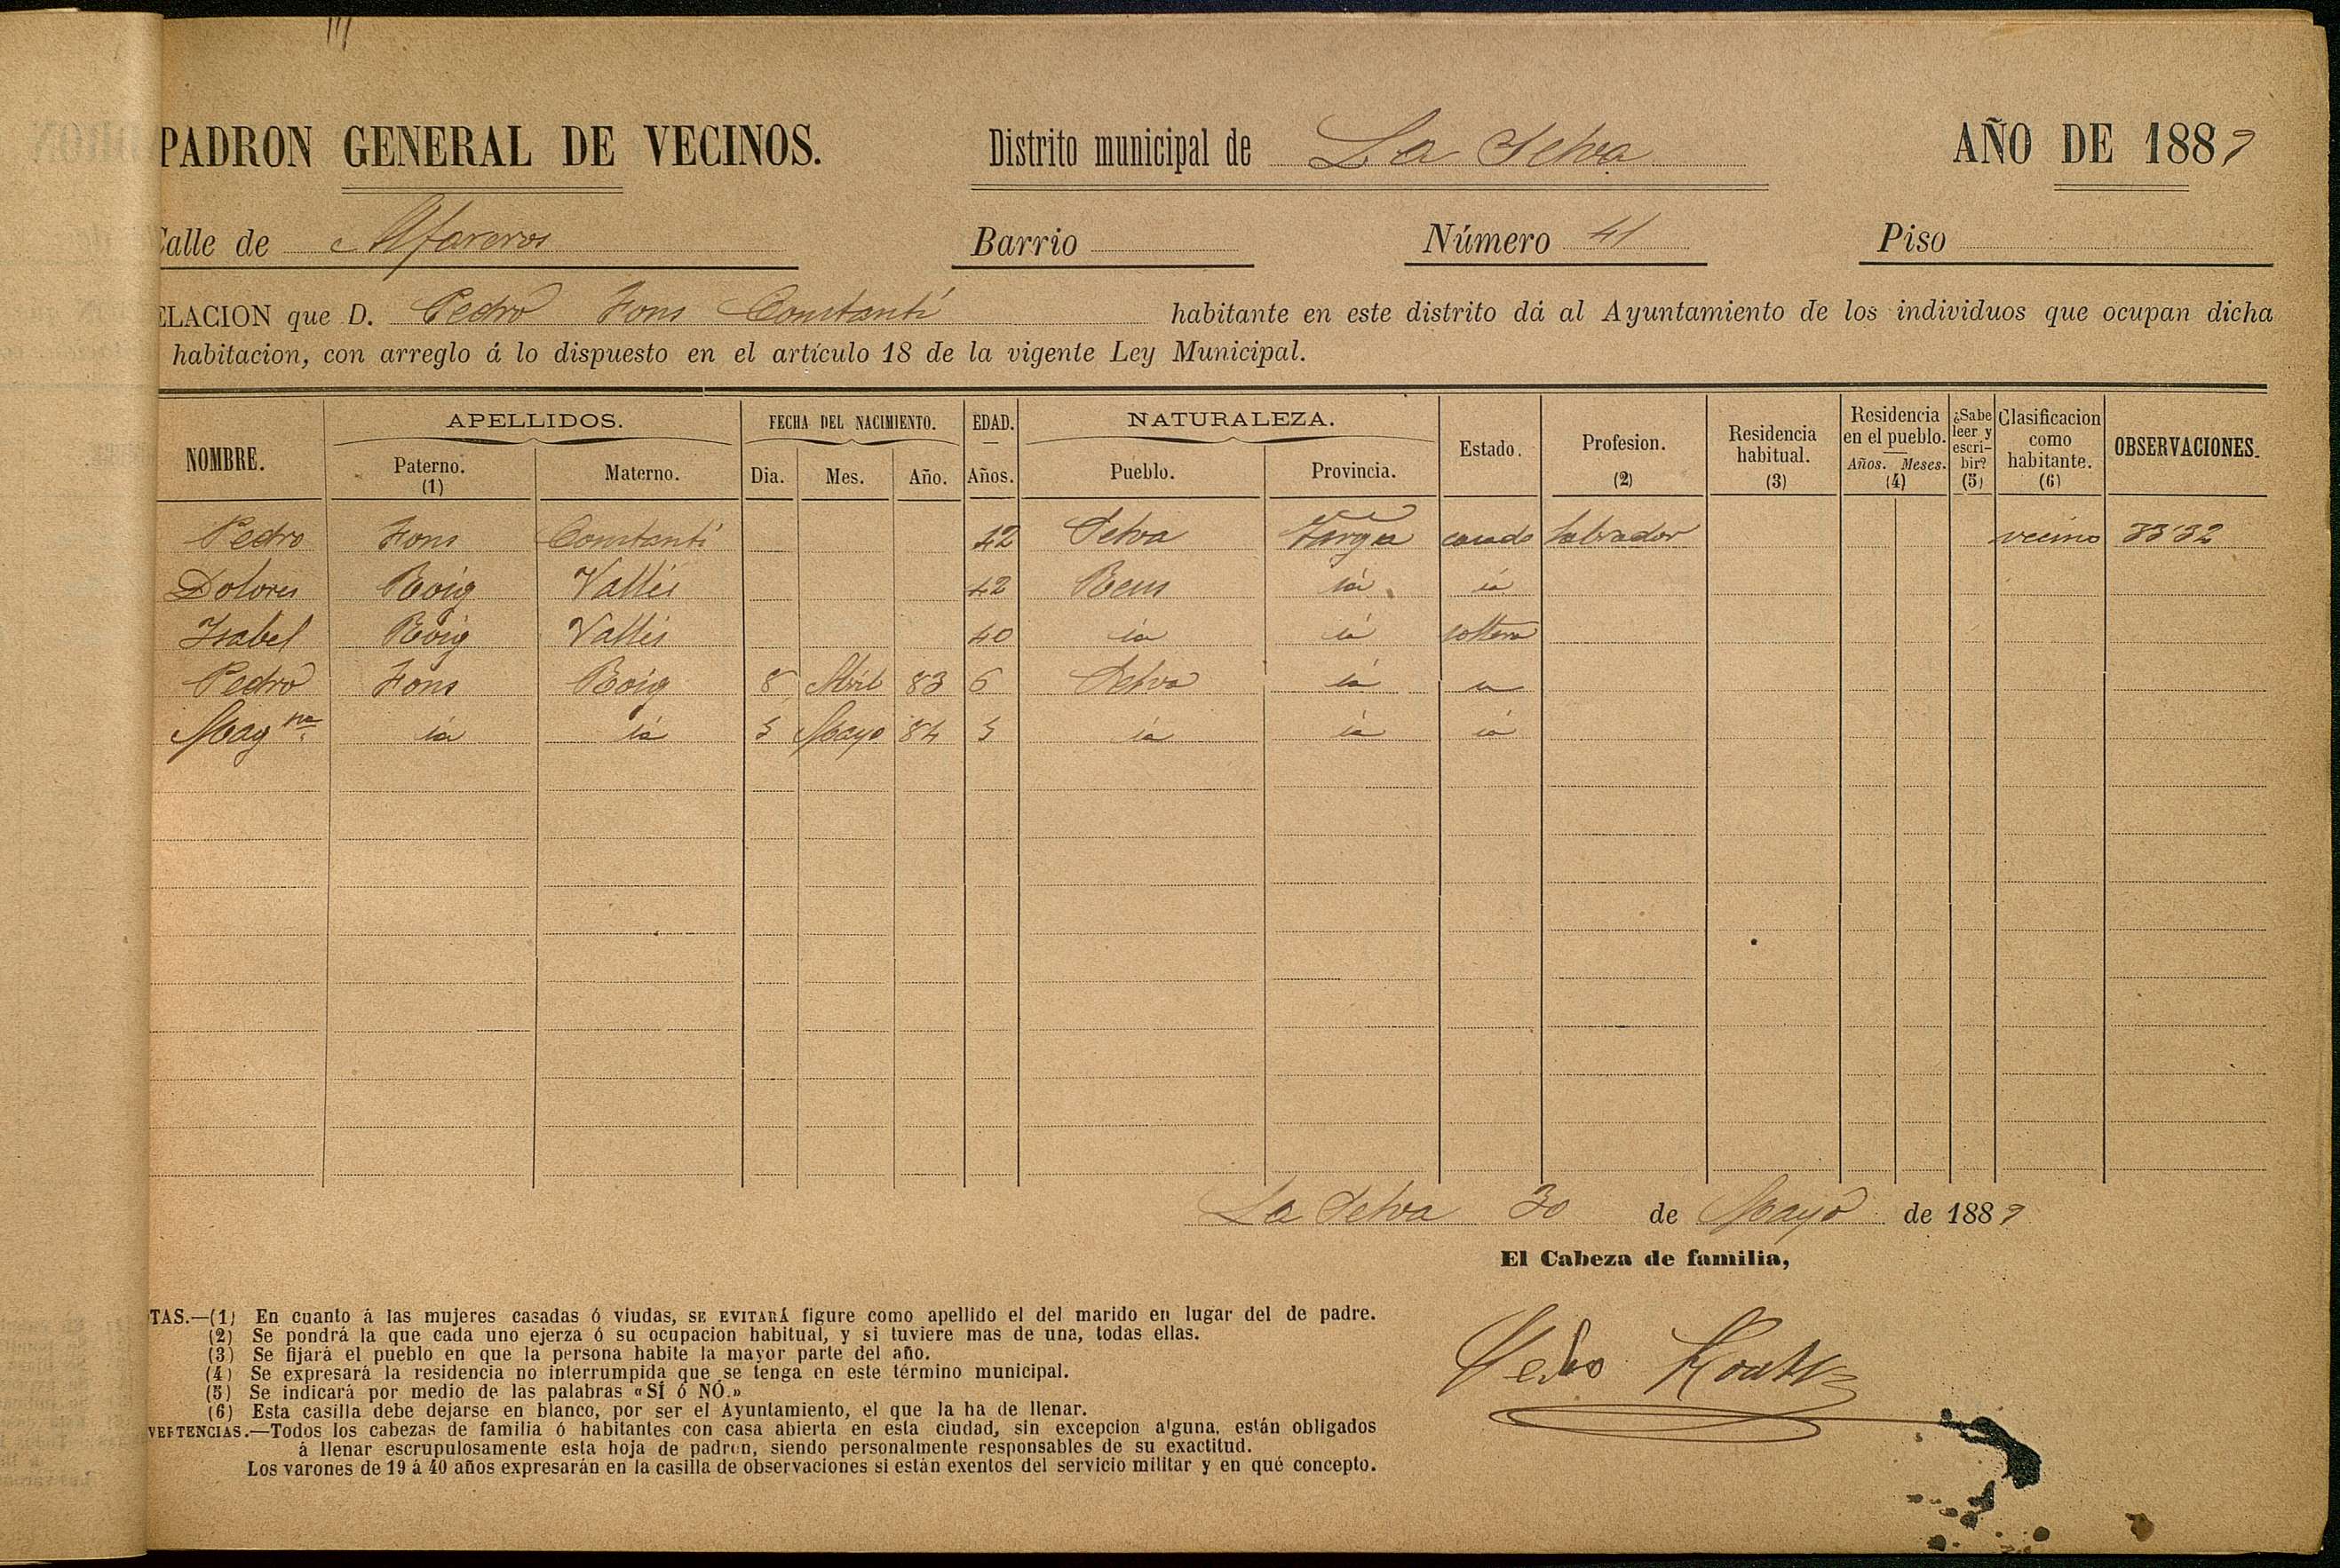 PADRON GENERAL DE VECINOS. Distrito municipal de La Selva AÑO DE 1889
Calle de Alfareros Barrio Número 41 Piso
ELACION que D. Pedro Fons Constantí habitante en este distrito dá al Ayuntamiento de los individuos que ocupan dicha
habitacion, con arreglo á lo dispuesto en el artículo 18 de la vigente Ley Municipal.
NOMBRE. APELLIDOS. FECHA DEL NACIMIENTO. EDAD. NATURALEZA. Estado. Profesion. (2) Residencia habitual. (3) Residencia en el pueblo. Años. Meses. (4) ¿Sabe leer y escribir? (5) Clasificacion como habitante. (6) OBSERVACIONES.
Paterno. (1) Materno. Dia. Mes. Año. Años. Pueblo. Provincia.
Pedro Fons Constantí 42 Selva Targa casado labrador vecino 33'32
Dolores Roig Vallés 42 Reus id id
Isabel Roig Vallés 40 id id soltera
Pedro Fons Roig 8 Abril 83 6 Selva id id
Mag.na id id 5 Mayo 84 5 id id id
La Selva 30 de Mayo de 1889
El Cabeza de familia,
TAS.—(1) En cuanto á las mujeres casadas ó viudas, SE EVITARÁ figure como apellido el del marido en lugar del de padre.
(2) Se pondrá la que cada uno ejerza ó su ocupacion habitual, y si tuviere mas de una, todas ellas.
(3) Se fijará el pueblo en que la persona habite la mayor parte del año.
(4) Se expresará la residencia no interrumpida que se tenga en este término municipal.
(5) Se indicará por medio de las palabras «SÍ ó NÓ.»
(6) Esta casilla debe dejarse en blanco, por ser el Ayuntamiento, el que la ha de llenar.
VERTENCIAS.—Todos los cabezas de familia ó habitantes con casa abierta en esta ciudad, sin excepcion alguna, están obligados
á llenar escrupulosamente esta hoja de padron, siendo personalmente responsables de su exactitud.
Los varones de 19 á 40 años expresarán en la casilla de observaciones si están exentos del servicio militar y en qué concepto.
Pedro